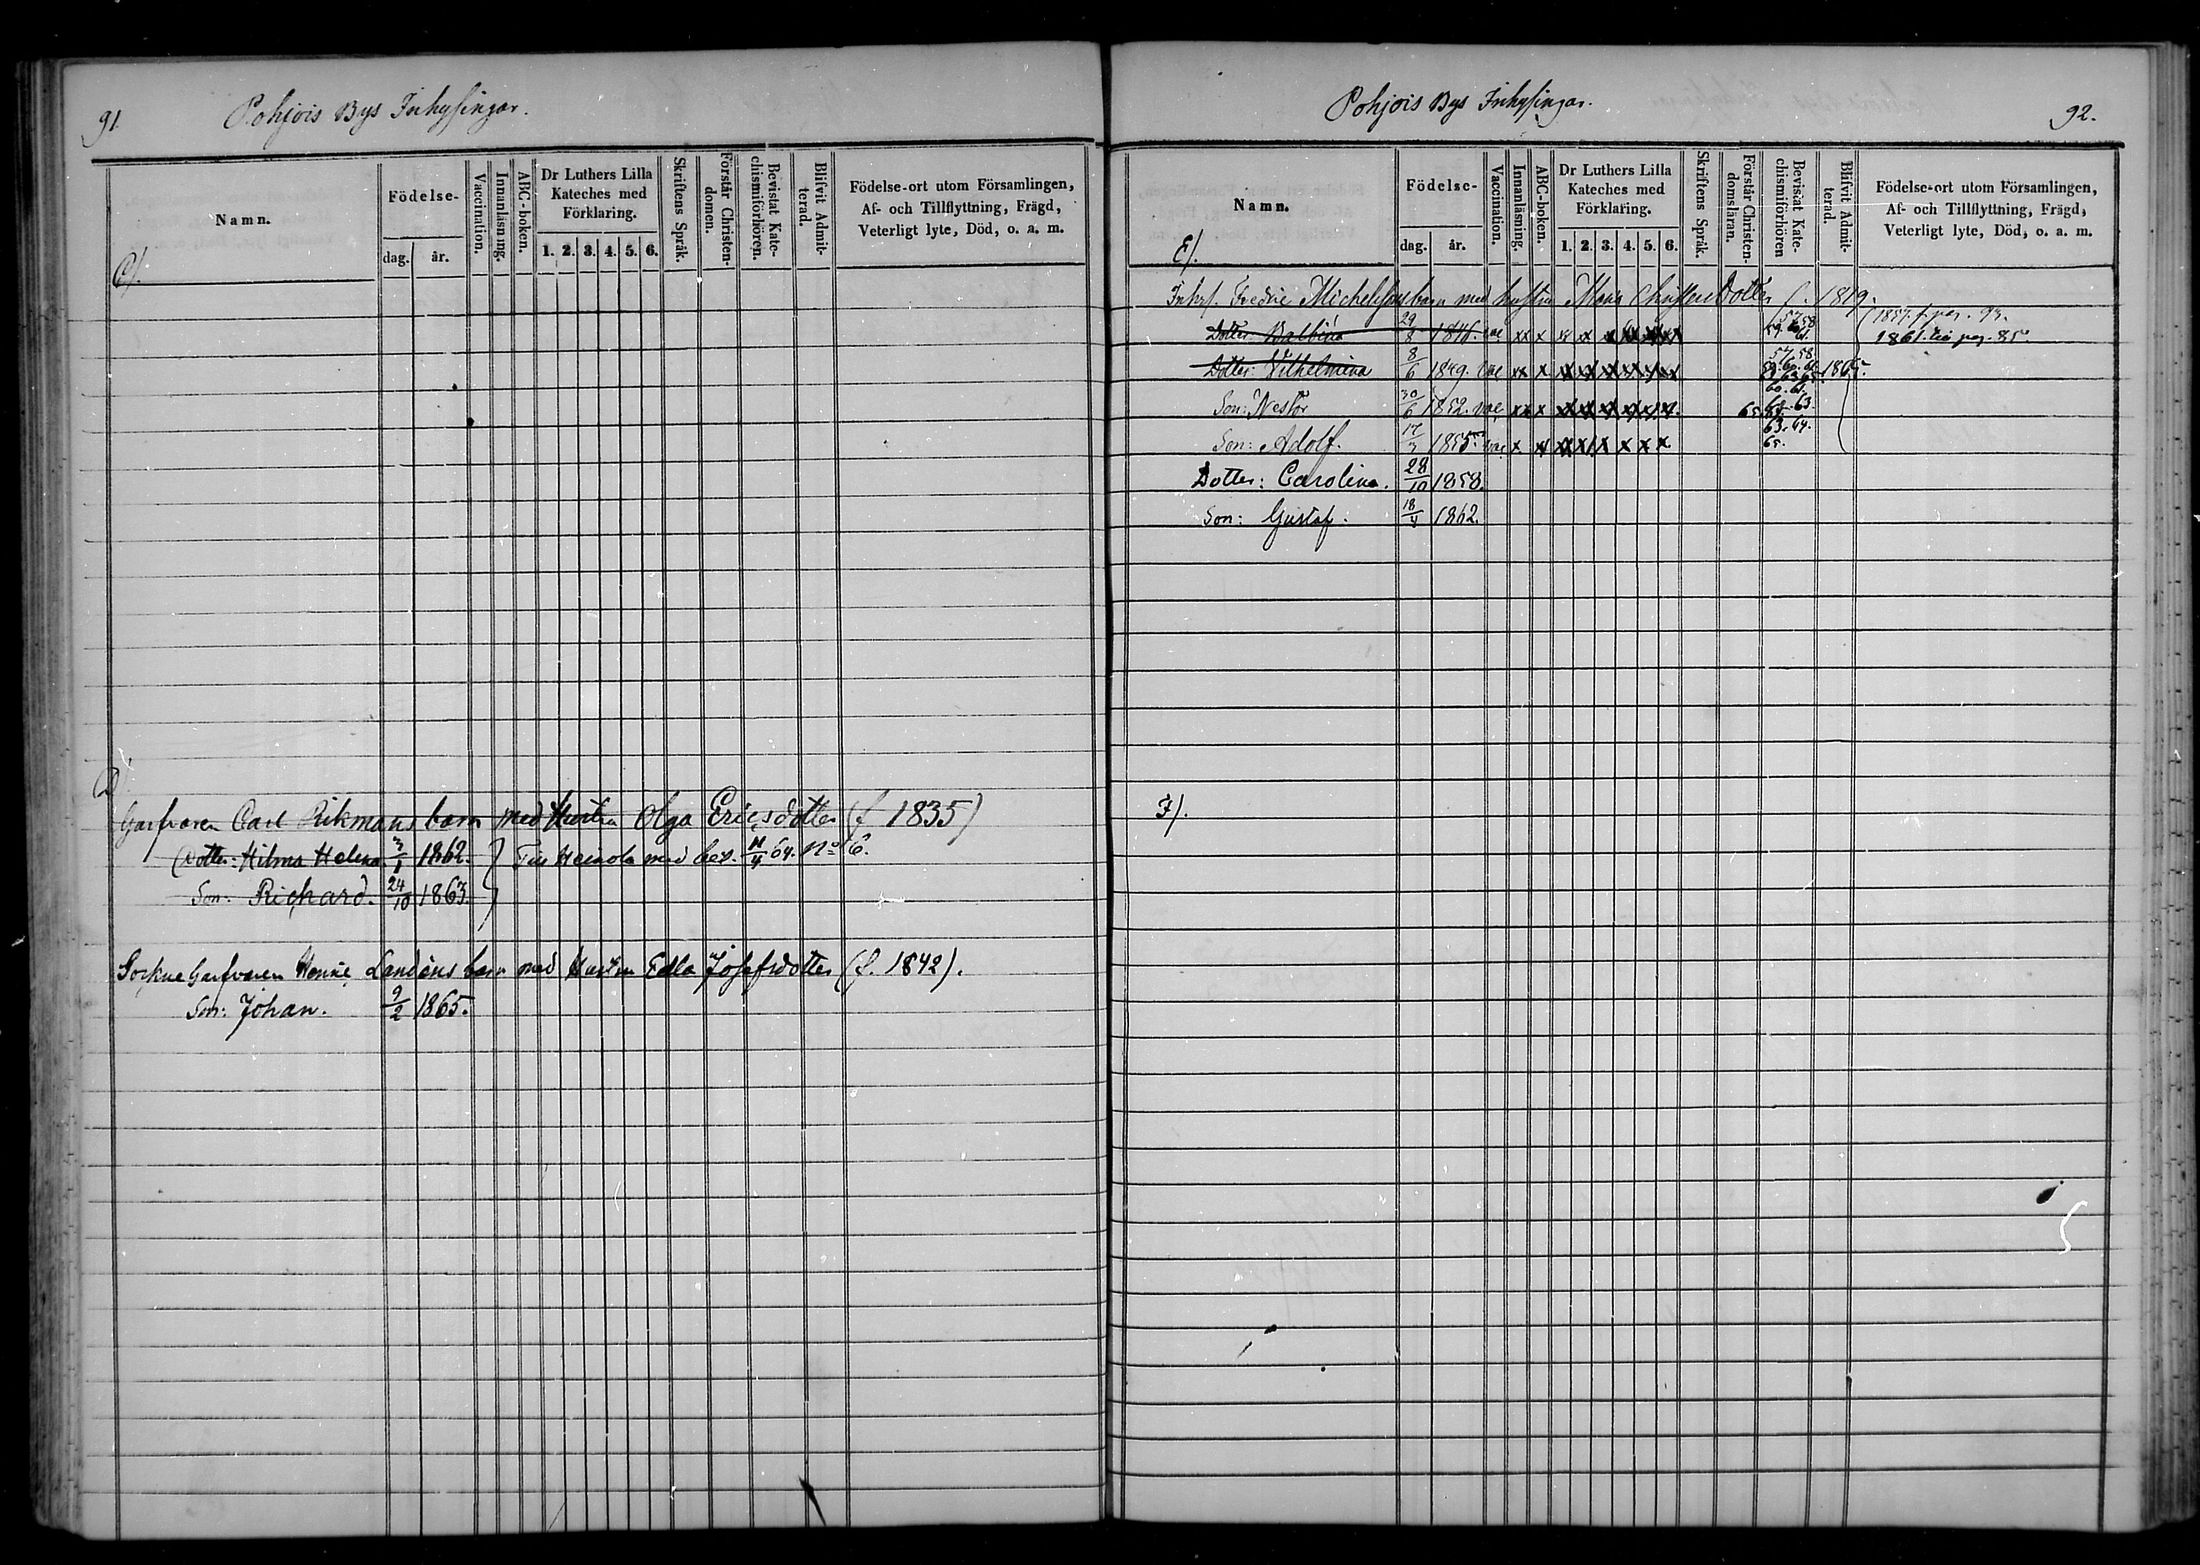 91. Pohjois Bys Inhysingar.
Namn. Födelse- dag. år. Vaccination. Innanläsning. ABC-boken. Dr Luthers Lilla Kateches med Förklaring. 1. 2. 3. 4. 5. 6. Skriftens Språk. Förstår Christendomen. Bevistat Katechismiförhören. Blifvit Admitterad. Födelse-ort utom Församlingen, Af- och Tillflyttning, Frägd, Veterligt lyte, Död, o. a. m.
C/.
D/.
Garfvaren Carl Rikmans barn med Hustru Olga Ericsdotter (f. 1835)
Dotter: Hilma Helena 1862. Till Heinola med bev. 64. No 6.
Son: Richard. 24/10 1863.
Sockne Garfvaren Landéns barn med Hustru Edla Josefsdotter (f. 1842).
Son: Johan. 9/2 1865.
Pohjois Bys Inhysingar. 92.
Namn. Födelse- dag. år. Vaccination. Innanläsning. ABC-boken. Dr Luthers Lilla Kateches med Förklaring. 1. 2. 3. 4. 5. 6. Skriftens Språk. Förstår Christendomsläran. Bevistat Katechismiförhören Blifvit Admitterad. Födelse-ort utom Församlingen, Af- och Tillflyttning, Frägd, Veterligt lyte, Död, o. a. m.
E/.
Inhys. Fredric Michelssons barn med hustru Maria Christersdotter f. 1819.
Dotter: Balbina 29/8 1846. vac xx x 57. 58 1857. f. pag. 93.
1861. till pag. 85.
Dotter: Vilhelmina 8/6 1849. vac xx x 57. 58. 1865.
Son: Nestor 30/6 1852. vac xx x 65.
Son: Adolf. 17/3 1855. vac x x 63. 64. 65.
Dotter: Carolina. 28/10 1858.
Son: Gustaf. 18/4 1862.
F/.